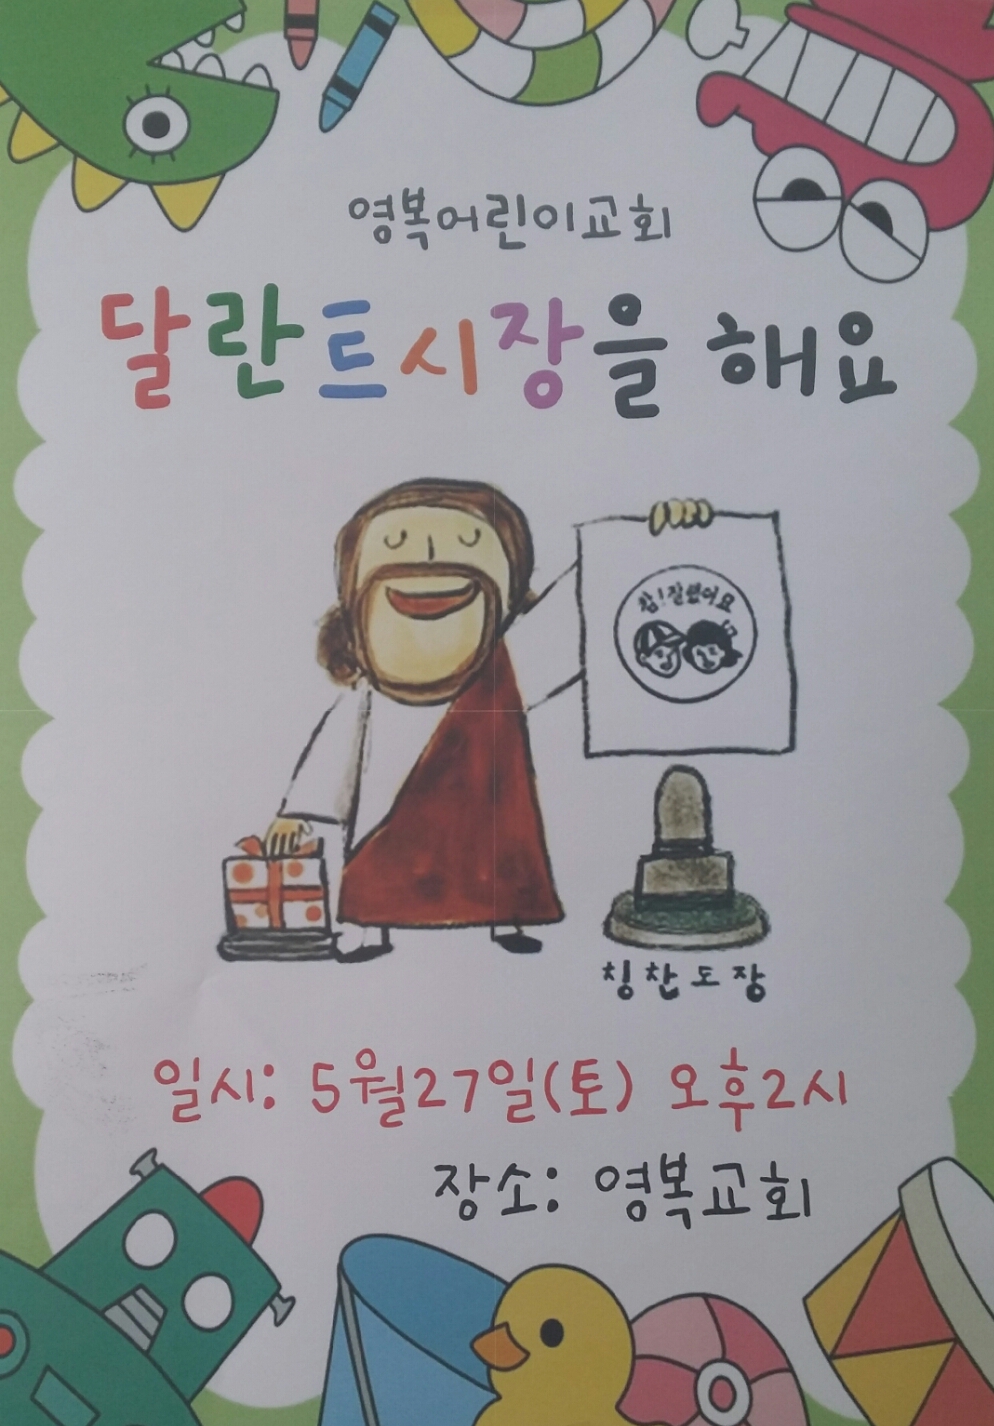 영복어린이교회
달란트시장을 해요
참!잘했어요
칭찬도장
일시: 5월27일(토) 오후2시
장소: 영복교회